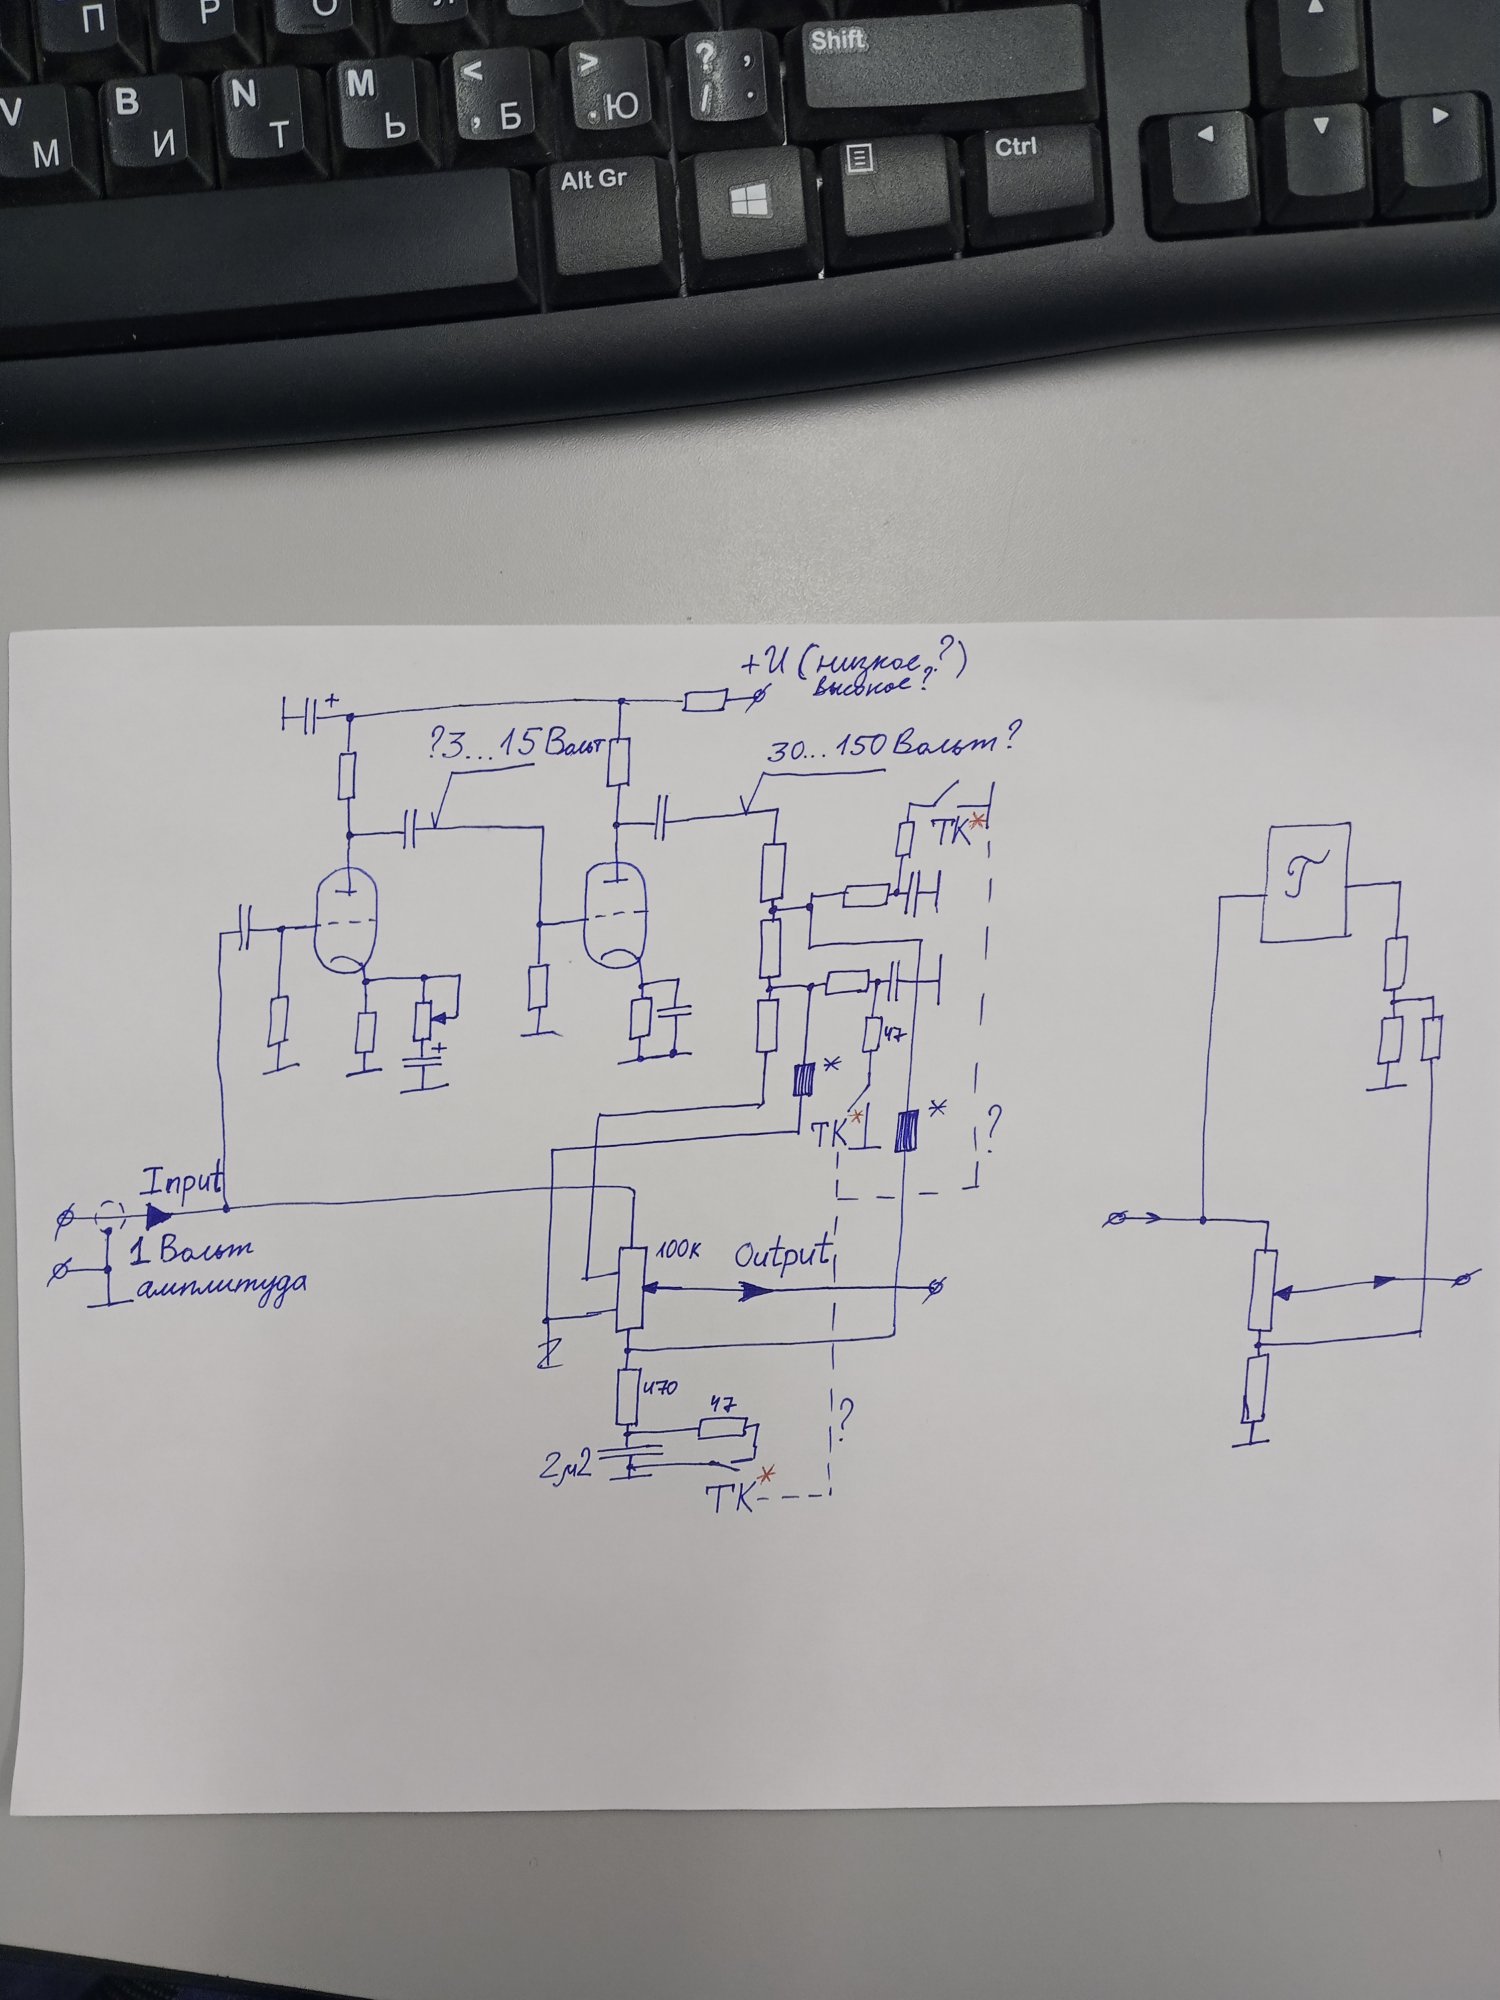 П
Р
О
V
М
B
И
N
Т
M
Ь
<
, Б
>
. Ю
? ,
/ .
Shift
Alt Gr
Ctrl
+U (низкое,?)
высокое?
+
?3...15 Вольт
30...150 Вольт?
ТК*
+
47
*
*
ТК*
?
Input
1 Вольт
амплитуда
100к
Output
470
47
2м2
ТК*
?
T